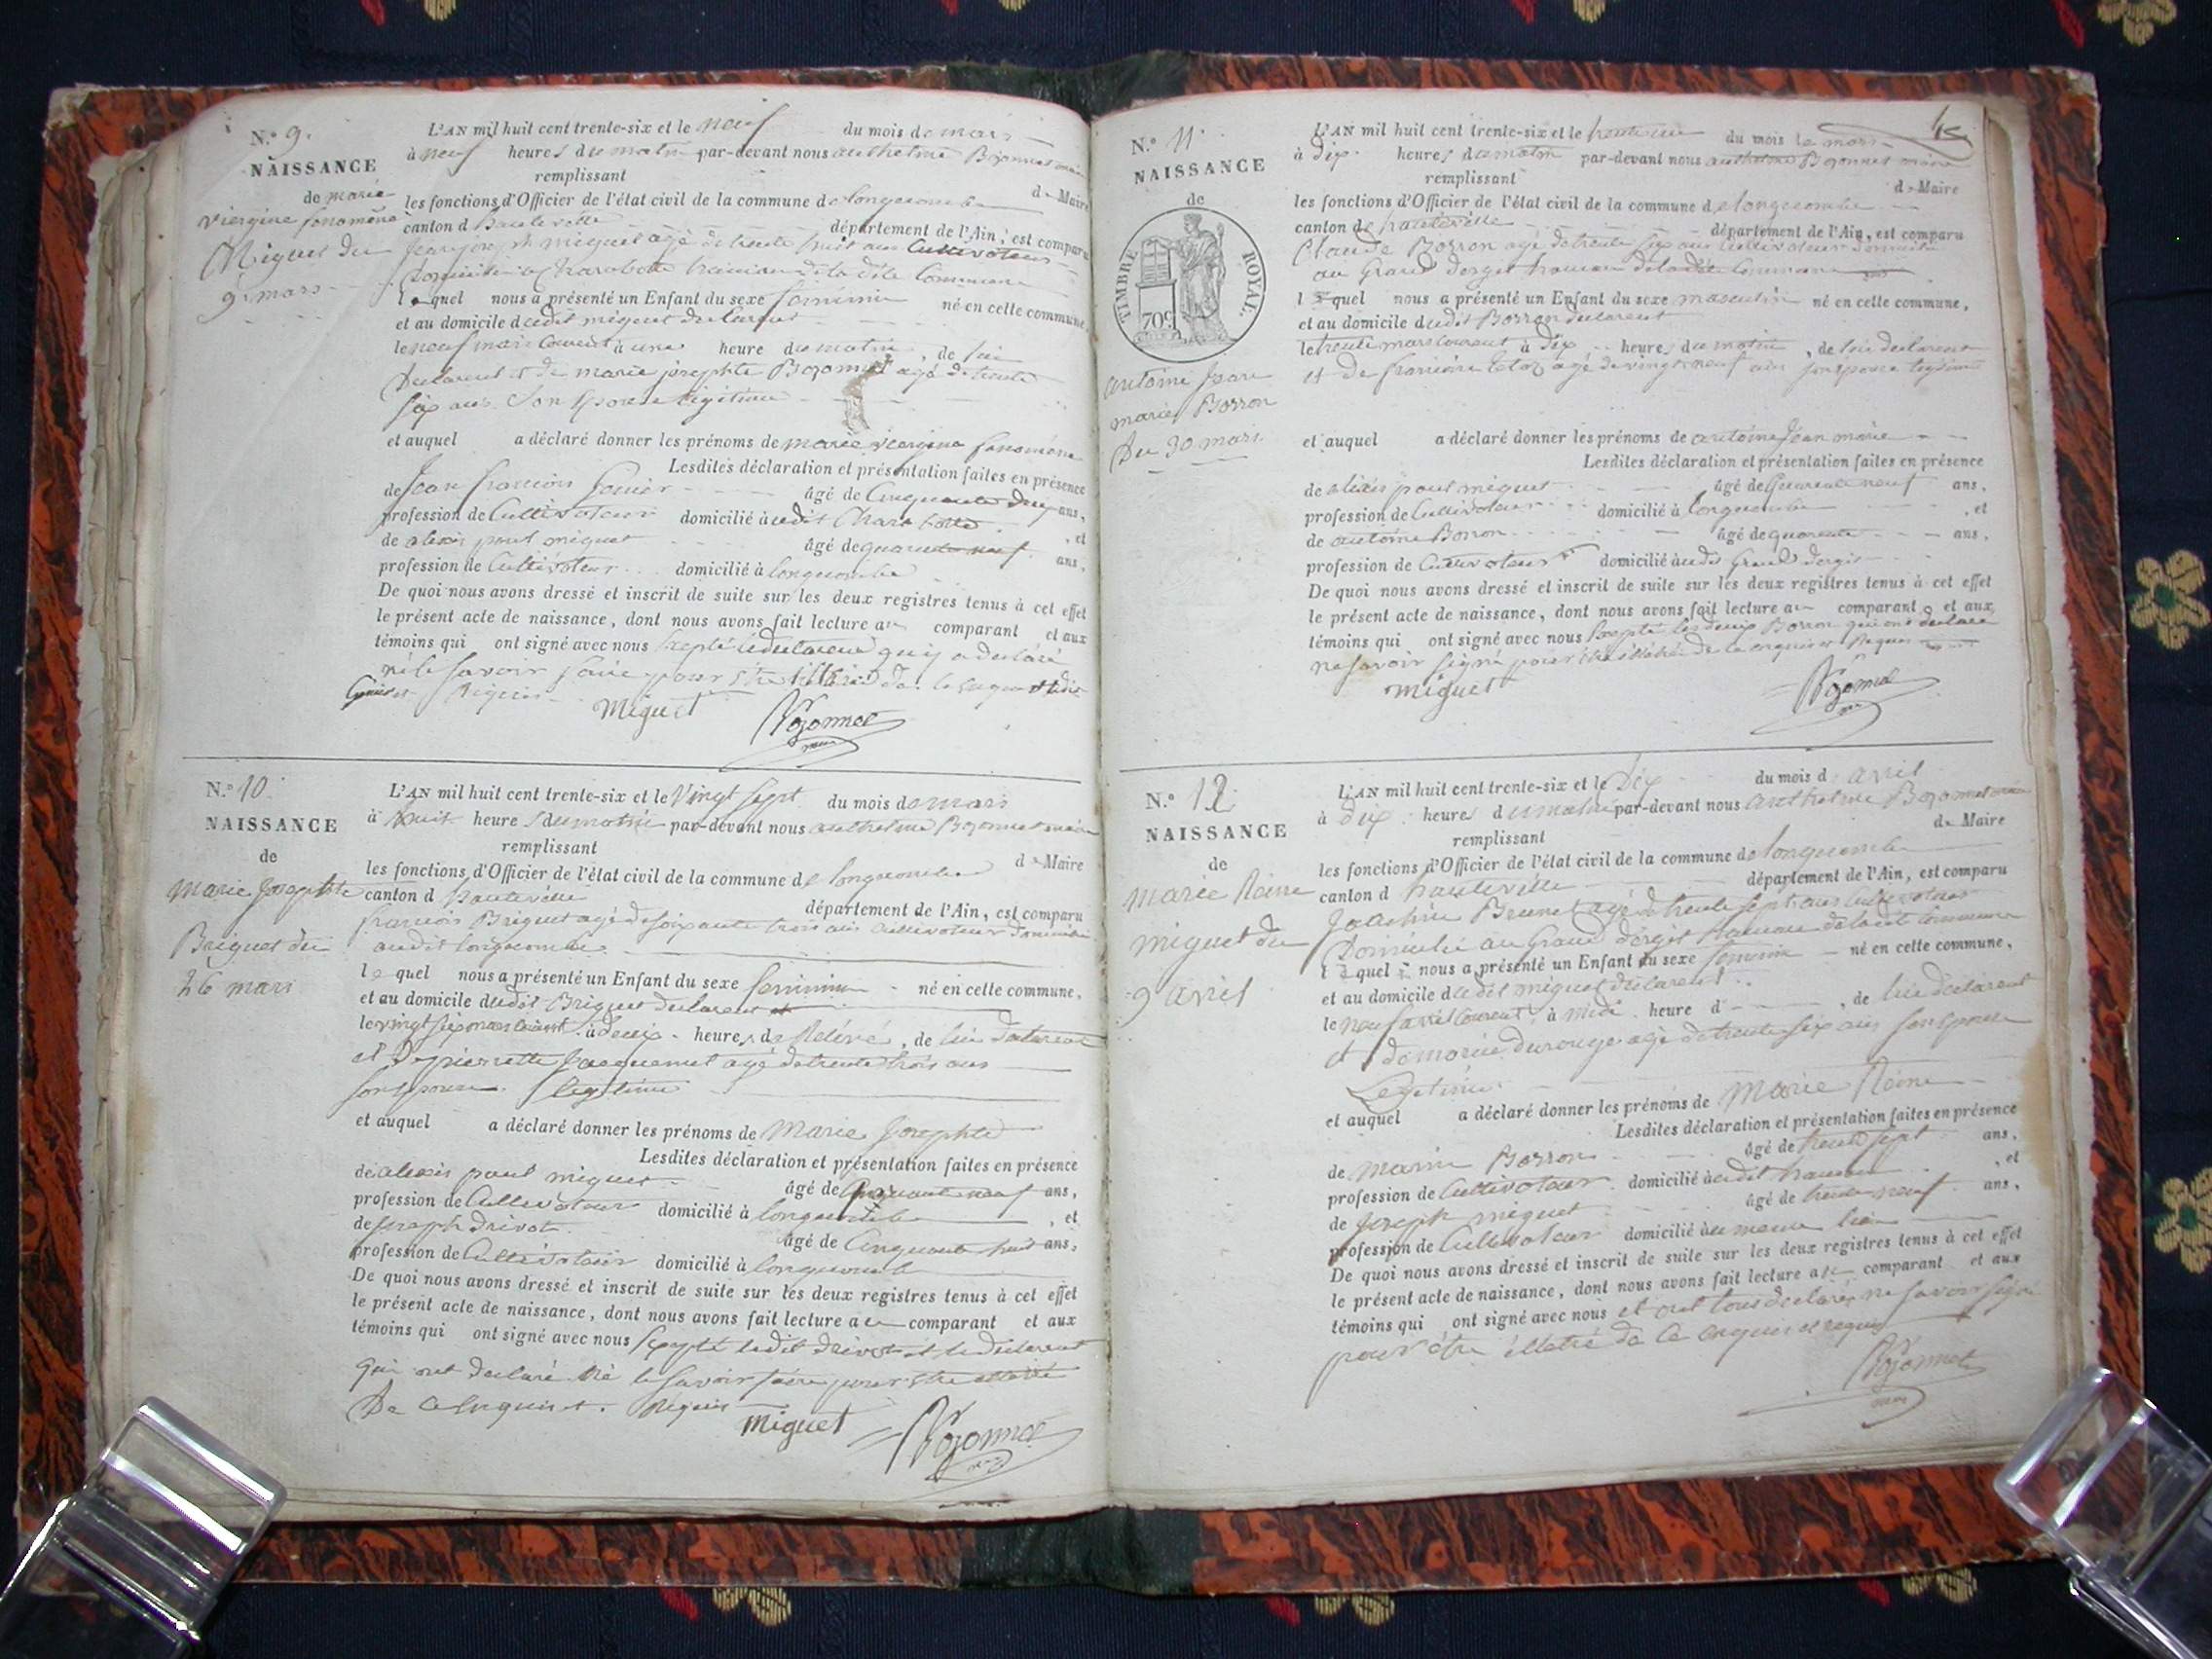 N.° 9.
NAISSANCE
de marie
viergine fonomène
Miguet du
9. mars
L'AN mil huit cent trente-six et le neuf du mois de mars
à neuf heures du matin par-devant nous anthelme Bozonnet maire
remplissant
d Maire
les fonctions d'Officier de l'état civil de la commune de longecombe
canton d hauteville département de l'Ain, est comparu
miguet agé de trente huit ans Cultivateur
hameau de la dite Commune
lequel nous a présenté un Enfant du sexe feminin né en cette commune,
et au domicile dudit miguet declarent
le neuf mars courent à une heure du matin, de lui
declarent et de marie josephte Bozonnet agé de trente
six ans Son Epouse légitime
et auquel a déclaré donner les prénoms de marie viergine fonomène
Lesdites déclaration et présentation faites en présence
de Jean françois âgé de Cinquante deux ans,
profession de Cultivateur domicilié audit
de alexis paul miguet âgé de quarante neuf ans, et
profession de Cultivateur domicilié à longecombe
De quoi nous avons dressé et inscrit de suite sur les deux registres tenus à cet effet
le présent acte de naissance, dont nous avons fait lecture au comparant et aux
témoins qui ont signé avec nous Excepté le declarent qui a declaré
ne le savoir faire pour être de ce enquis
requis
Miguet Bozonnet
maire
N.° 10
NAISSANCE
de
Marie Josephte
Briguet du
26 mars
L'AN mil huit cent trente-six et le vingt sept du mois de mars
à huit heures du matin par-devant nous anthelme Bozonnet maire
remplissant
d Maire
les fonctions d'Officier de l'état civil de la commune de longecombe
canton d hauteville département de l'Ain, est comparu
françois Briguet agé de soixante trois ans cultivateur domicilié
audit longecombe
lequel nous a présenté un Enfant du sexe feminin né en cette commune,
et au domicile dudit Briguet declarent
le vingt six mars courant à deux heures de Relevé, de lui declarent
et de pierrette Jacquemet agé de trente trois ans
son Epouse légitime
et auquel a déclaré donner les prénoms de Marie Josephte
Lesdites déclaration et présentation faites en présence
de alexis paul miguet âgé de neuf ans,
profession de Cultivateur domicilié à longecombe, et
de joseph Drivet âgé de Cinquante huit ans,
profession de Cultivateur domicilié à longecombe
De quoi nous avons dressé et inscrit de suite sur les deux registres tenus à cet effet
le présent acte de naissance, dont nous avons fait lecture au comparant et aux
témoins qui ont signé avec nous Excepté ledit Drivet et le declarent
qui ont declaré ne le savoir faire pour être
De ce enquis et Requis
Miguet Bozonnet
N.° 11.
NAISSANCE
de
TIMBRE ROYAL
70c
antoine jean
marie Borron
Du 30 mars
L'AN mil huit cent trente-six et le trente un du mois de mars
à Dix heures du matin par-devant nous anthelme Bozonnet maire
remplissant
d Maire
les fonctions d'Officier de l'état civil de la commune de longecombe
canton de hauteville département de l'Ain, est comparu
Claude Borron agé de trente six ans cultivateur domicilié
au Grand dergit hameau de ladite Commune
lequel nous a présenté un Enfant du sexe masculin né en cette commune,
et au domicile dudit Borron declarent
le trente mars courant à Dix heures du matin, de lui declarent
et de agé de vingt neuf ans son epouse legitime
et auquel a déclaré donner les prénoms de antoine Jean marie
Lesdites déclaration et présentation faites en présence
de alexis paul miguet âgé de quarante neuf ans,
profession de Cultivateur domicilié à longecombe, et
de antoine Borron âgé de quarante ans,
profession de Cultivateur domicilié audit Grand dergit
De quoi nous avons dressé et inscrit de suite sur les deux registres tenus à cet effet
le présent acte de naissance, dont nous avons fait lecture au comparant et aux
témoins qui ont signé avec nous Excepté les deux Borron qui ont declaré
ne savoir signé pour être illétré de ce enquis et Requis
Miguet Bozonnet
N.° 12
NAISSANCE
de
Marie Reine
miguet du
9 avril
L'AN mil huit cent trente-six et le Dix du mois d avril
à dix heures du matin par-devant nous anthelme Bozonnet maire
remplissant
d Maire
les fonctions d'Officier de l'état civil de la commune de longecombe
canton d hauteville département de l'Ain, est comparu
Joachin Brunet agé de trente sept ans cultivateur
Domicilié au Grand dergit hameau de ladite Commune
lequel nous a présenté un Enfant du sexe feminin né en cette commune,
et au domicile dudit miguet declarent
le neuf avril courent, à midi heure d, de lui declarent
et de marie agé de trente six ans son epouse
Legitime
et auquel a déclaré donner les prénoms de Marie Reine
Lesdites déclaration et présentation faites en présence
de Marin Borron âgé de trente sept ans,
profession de Cultivateur domicilié audit hameau, et
de Joseph miguet âgé de trente neuf ans,
profession de Cultivateur domicilié au meme lieu
De quoi nous avons dressé et inscrit de suite sur les deux registres tenus à cet effet
le présent acte de naissance, dont nous avons fait lecture au comparant et aux
témoins qui ont signé avec nous et ont tous declaré ne savoir signé
pour être illetré de ce enquis et requis
Bozonnet
maire